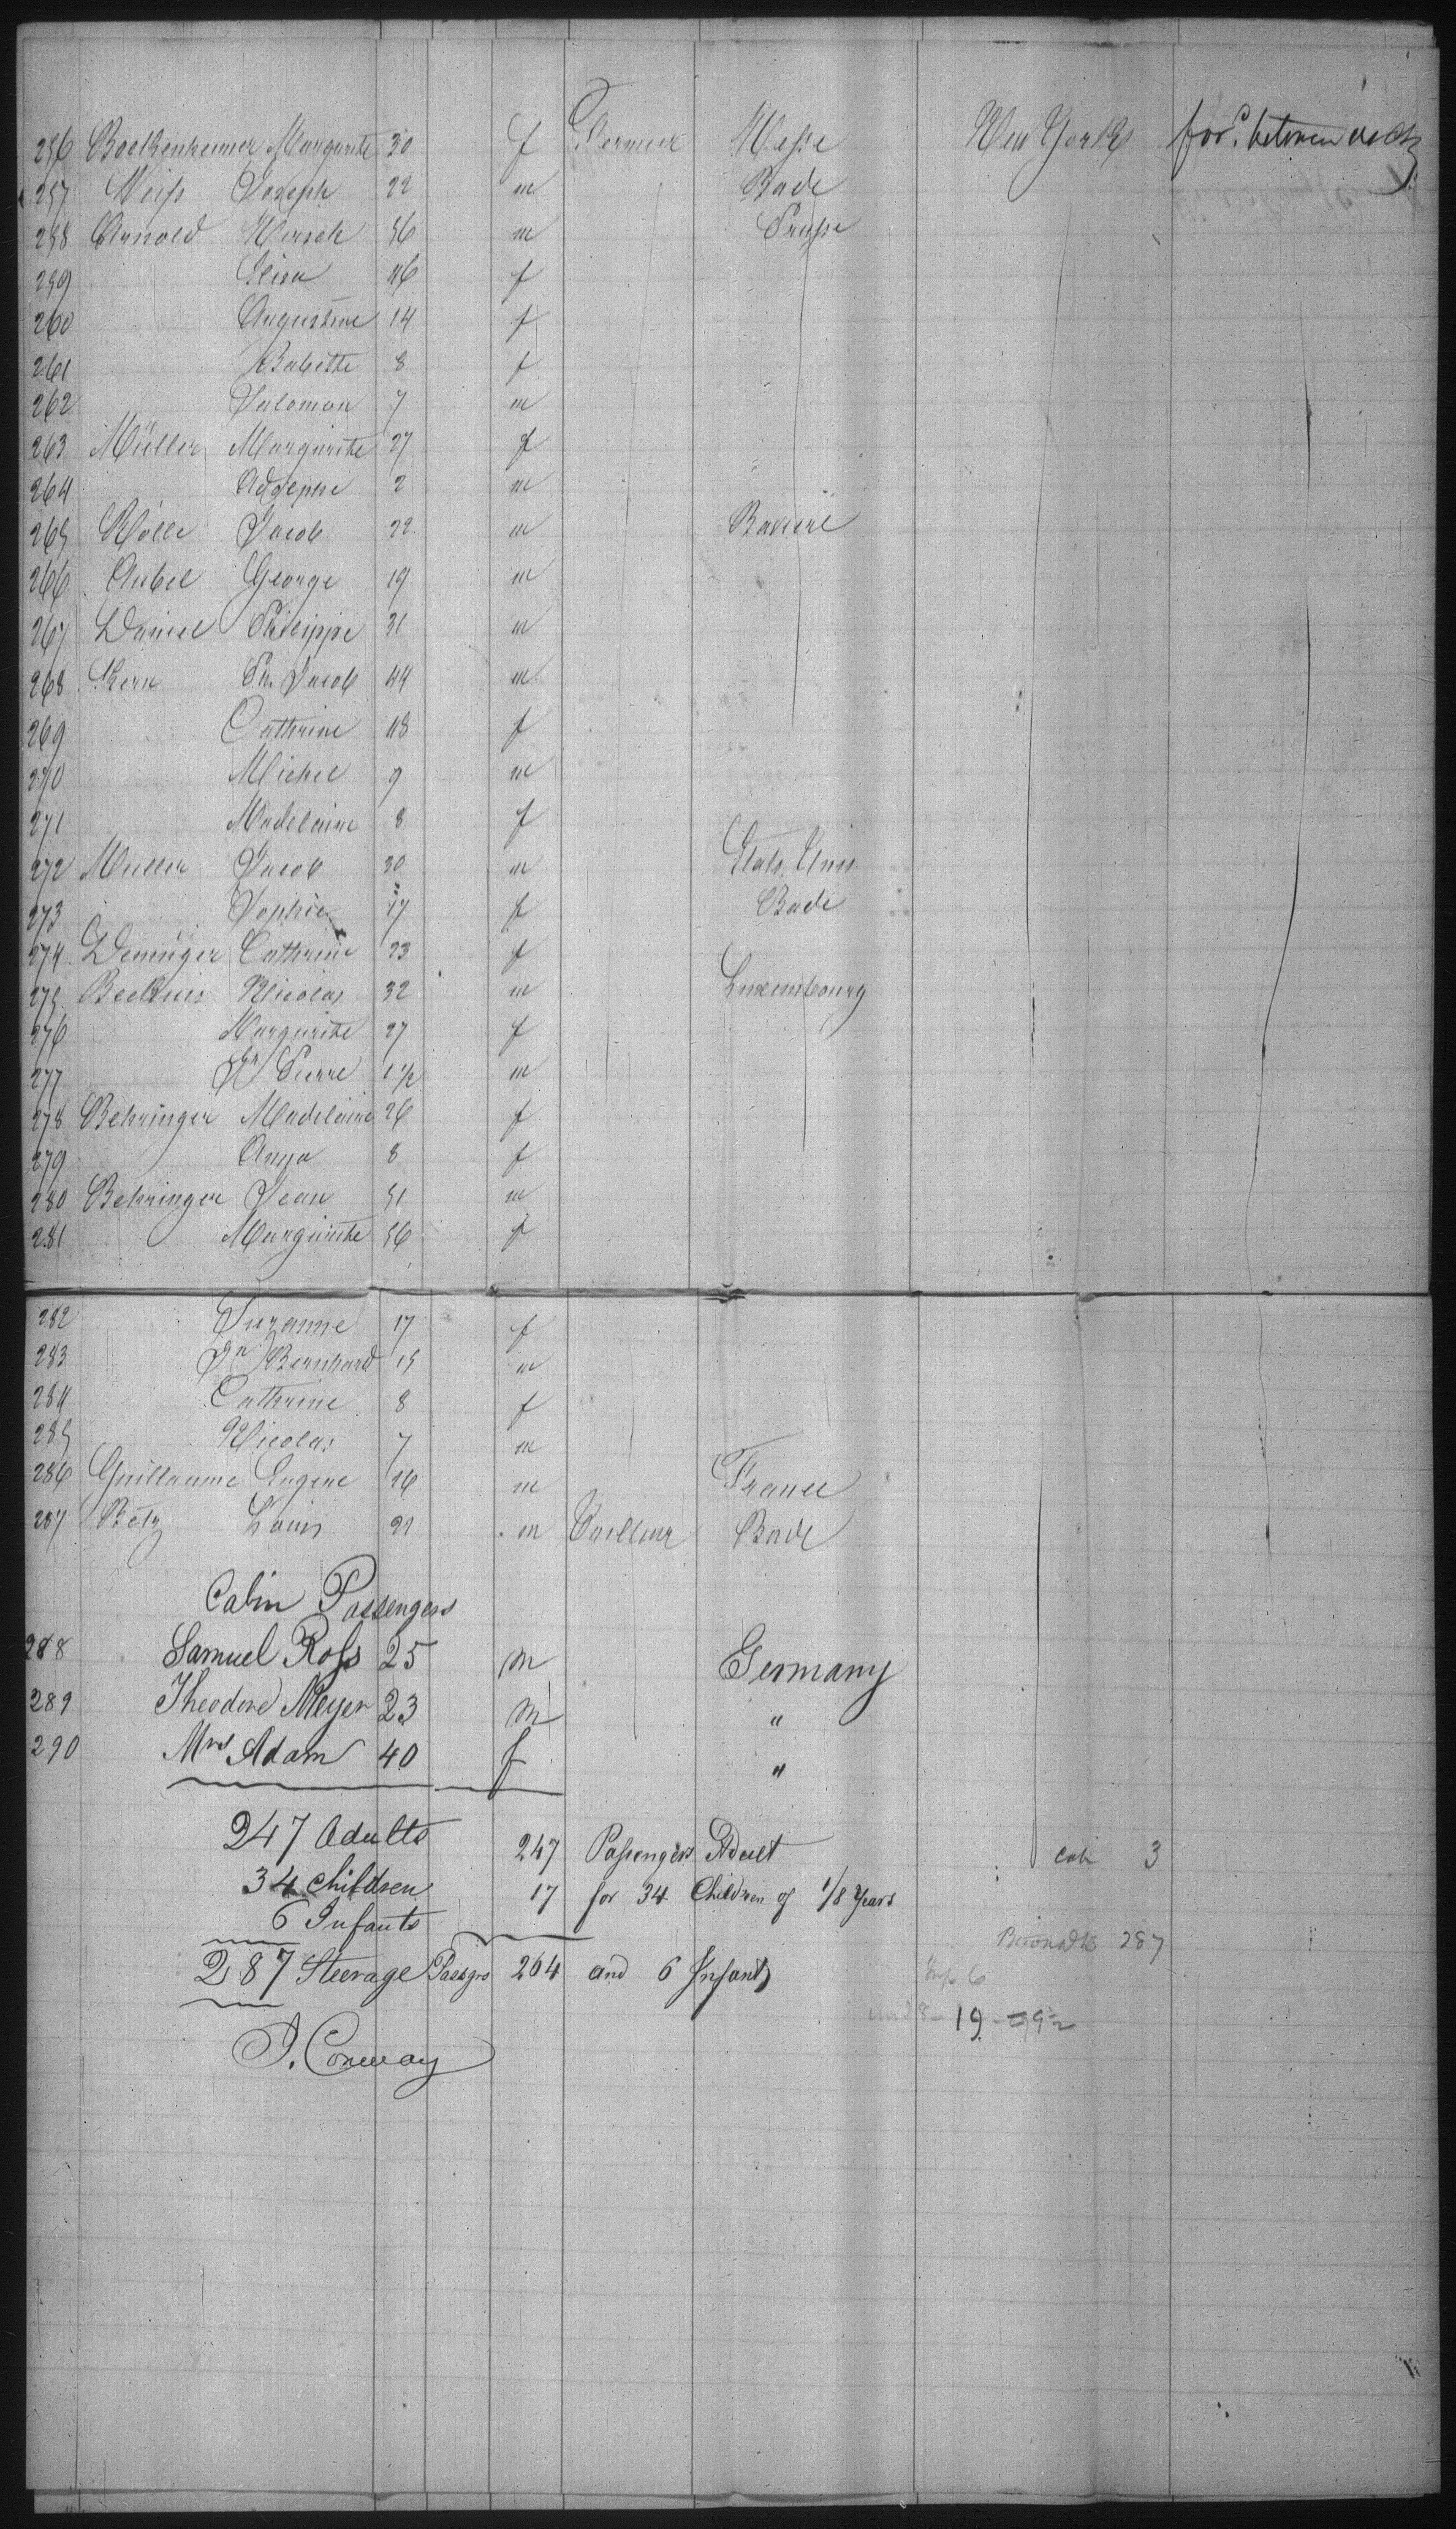 256 Bockenheimer Margarite 30 f Fermier Hesse New York for.d between decks
257 Weiss Joseph 22 m Bade
258 Arnold Hirsch 56 m Prusse
259 Elisa 46 f
260 Augustine 14 f
261 Babette 8 f
262 Salomon 7 m
263 Müller Margarite 27 f
264 Adolphe 2 m
265 Rölle Jacob 22 m Baviere
266 Aubel George 19 m
267 Daniel Philippe 31 m
268 Kern Jacob 44 m
269 Cathrine 48 f
270 Michel 9 m
271 Madelaine 8 f
272 Muller Jacob 30 m Etats Unis
273 Sophie 17 f Bade
274 Deninger Cathrine 23 f
275 Beckius Nicolas 32 m Luxembourg
276 Margarite 27 f
277 Jn Pierre 1 1/2 m
278 Behringer Madelaine 26 f
279 Anna 8 f
280 Behringer Jean 51 m
281 Margarite 56 f
282 Suzanne 17 f
283 Jn Bernhard 15 m
284 Cathrine 8 f
285 Nicolas 7 m
286 Guillaume Eugene 26 m France
287 Betz Louis 21 m Tailleur Bade
Cabin Passengers
288 Samuel Ross 25 m Germany
289 Theodore Meyer 23 m "
290 Mrs Adam 40 f "
247 Adults 247 Passengers Adult cab 3
34 children 17 for 34 Children of 1/8 Years
6 Infants
287 Steerage Passgrs 264 and 6 Infants 287
Inf 6
und 8 - 19
J. Conway